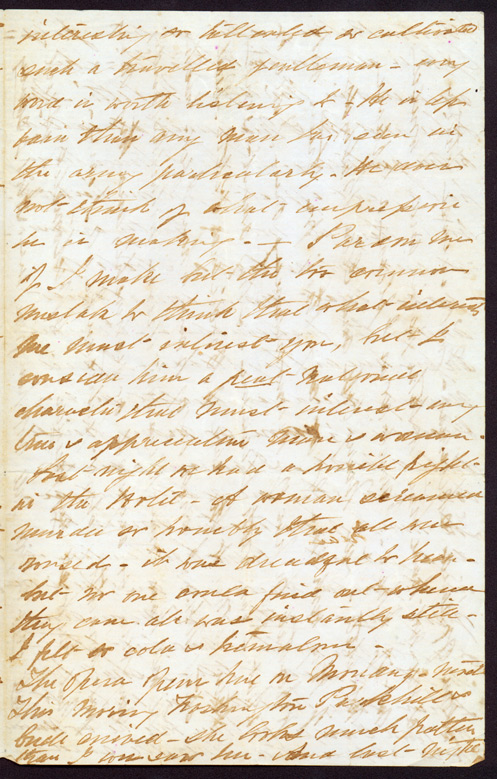 interesting or
such a travelled gentleman - any
word is worth listening to - He is less
vain than any man I've seen in
the army particularly - He does
not think of what impression
he is making. - Pardon me
if I make but the too common
mistake to think that what interests
me must interest you, but I
consider him a great
character & that must interest any
true & appreciative woman.
Last night we had a horrible fright
in the Hotel - A woman screamed
murder so horribly that all were
roused - it was dreadful to hear -
but no one could find out where
they came all was instantly still -
I felt so cold & tremulous -
The Opera opens here on Monday next
This morning Parkhill &
bride arrived - she looks much prettier
than I ever saw her - And last night